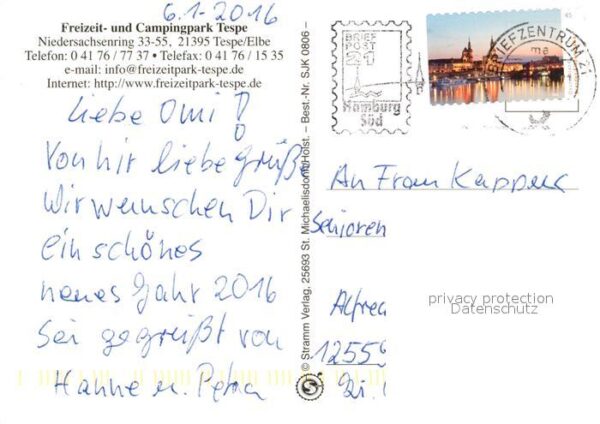 6.1-2016
Freizeit- und Campingpark Tespe
Niedersachsenring 33-55, 21395 Tespe/Elbe
Telefon: 0 41 76 / 77 37 • Telefax: 0 41 76 / 15 35
e-mail: info@freizeitpark-tespe.de
Internet: http://www.freizeitpark-tespe.de
Liebe Omi!
Von hir liebe Grüß
Wir wünschen Dir
ein schönes
neues Jahr 2016
Sei gegrüßt von
Hanne u. Petra
© Stramm Verlag, 25693 St. Michaelisdonn/Holst. – Best.-Nr. SJK 0806 –
BRIEF
POST
21
Hamburg
Süd
BRIEFZENTRUM 21
45
An Frau
Senioren
Alfred
12556
privacy protection
Datenschutz